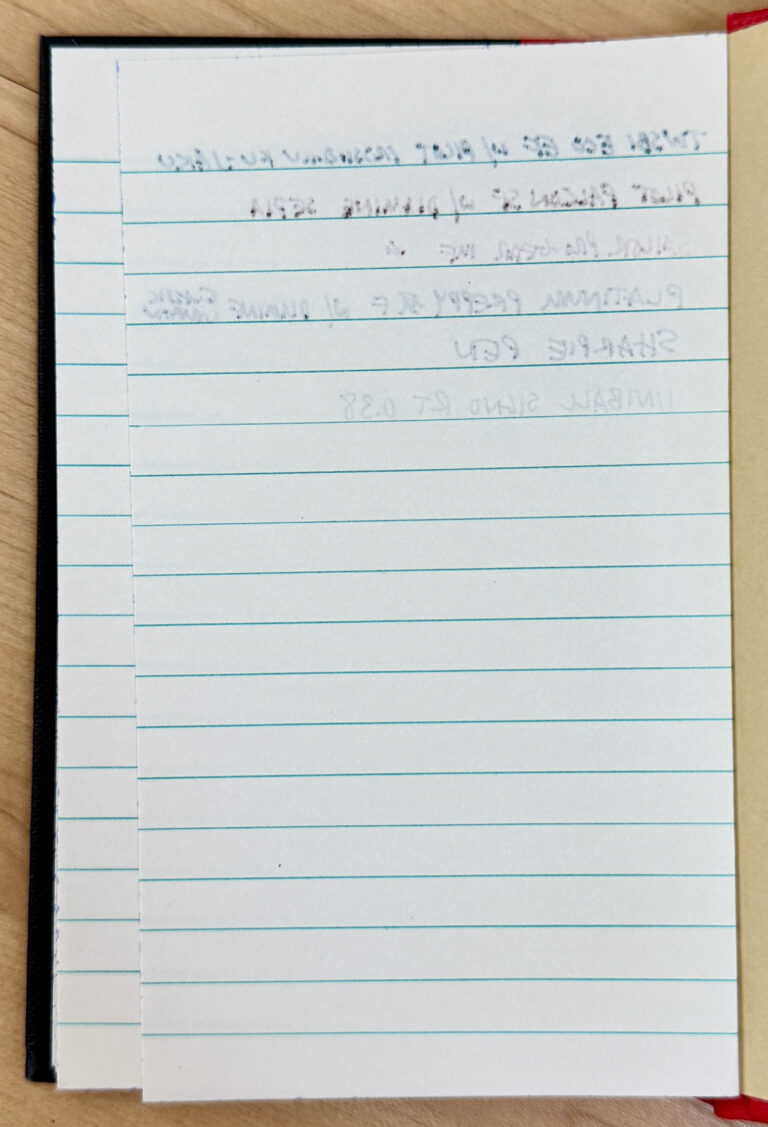 TWSBI ECO EF W/ PILOT IROSHIZUKU KU-JAKU
PILOT FALCON SF W/ DIAMINE SEPIA
SAILOR PRO GEAR MF
PLATINUM PREPPY F W/ DIAMINE CLASSIC
SHARPIE PEN
UNIBALL SIGNO RT 0.38